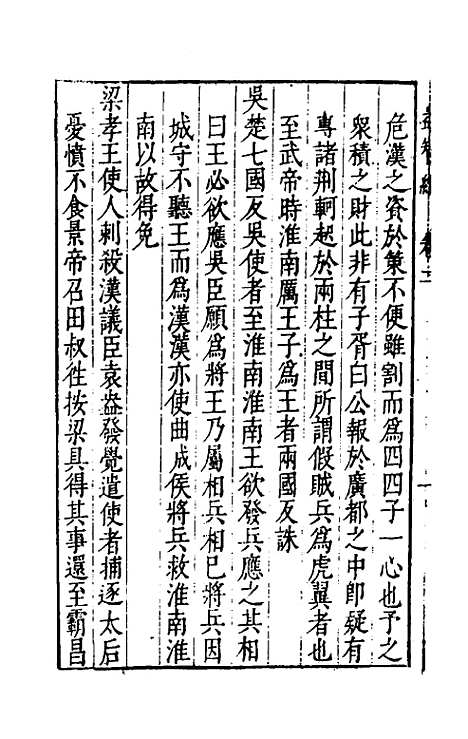 危漢之資於策不便雖割而爲四四子一心也予之
衆積之財此非有子胥白公報於廣都之中即疑有
專諸荆軻起於兩柱之間所謂假賊兵爲虎翼者也
至武帝時淮南厲王子爲王者兩國反誅
吳楚七國反吳使者至淮南淮南王欲發兵應之其相
曰王必欲應吳臣願爲將王乃屬相兵相已將兵因
城守不聽王而爲漢漢亦使曲成侯將兵救淮南淮
南以故得免
梁孝王使人刺殺漢議臣袁盎發覺遣使者捕逐太后
憂憤不食景帝召田叔徃按梁具得其事還至霸昌